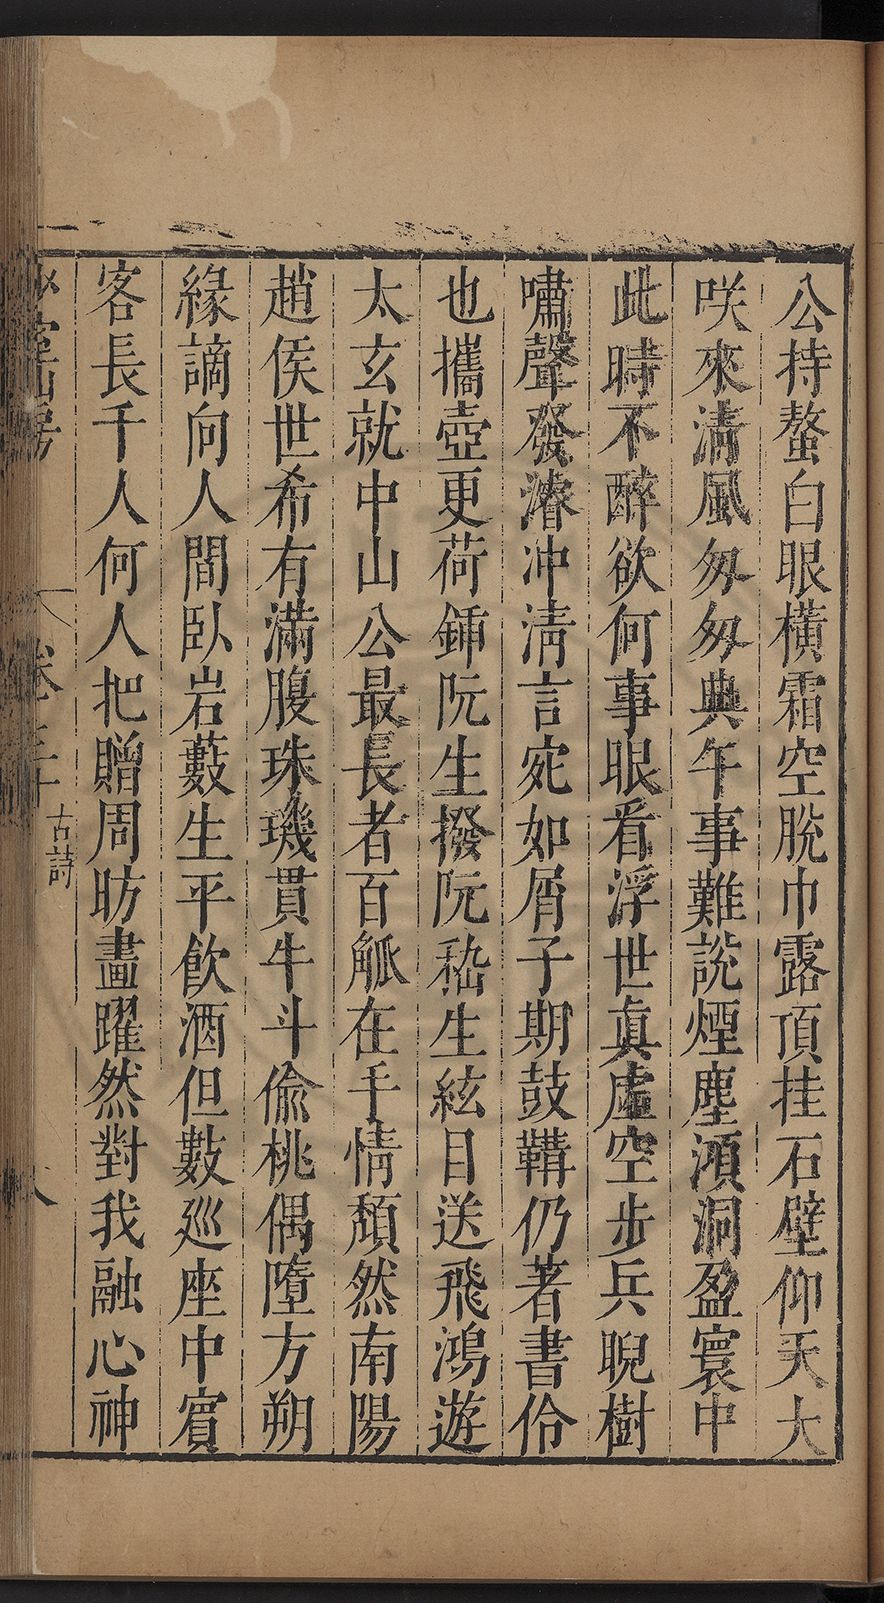 公持螯白眼橫霜空脫巾露頂挂石壁仰天大
咲來清風匆匆典午事難說煙塵澒洞盈寰中
此時不醉欲何事眼看浮世真虛空步兵睨樹
嘯聲發濬冲清言宛如屑子期鼓鞴仍著書伶
也攜壺更荷鍤阮生撥阮嵇生絃目送飛鴻遊
太玄就中山公最長者百觚在手情頹然南陽
趙侯世希有滿腹珠璣貫牛斗偷桃偶墮方朔
緣謫向人間臥岩藪生平飲酒但數巡座中賓
客長千人何人把贈周昉畫躍然對我融心神
山房
卷二十
古詩
八